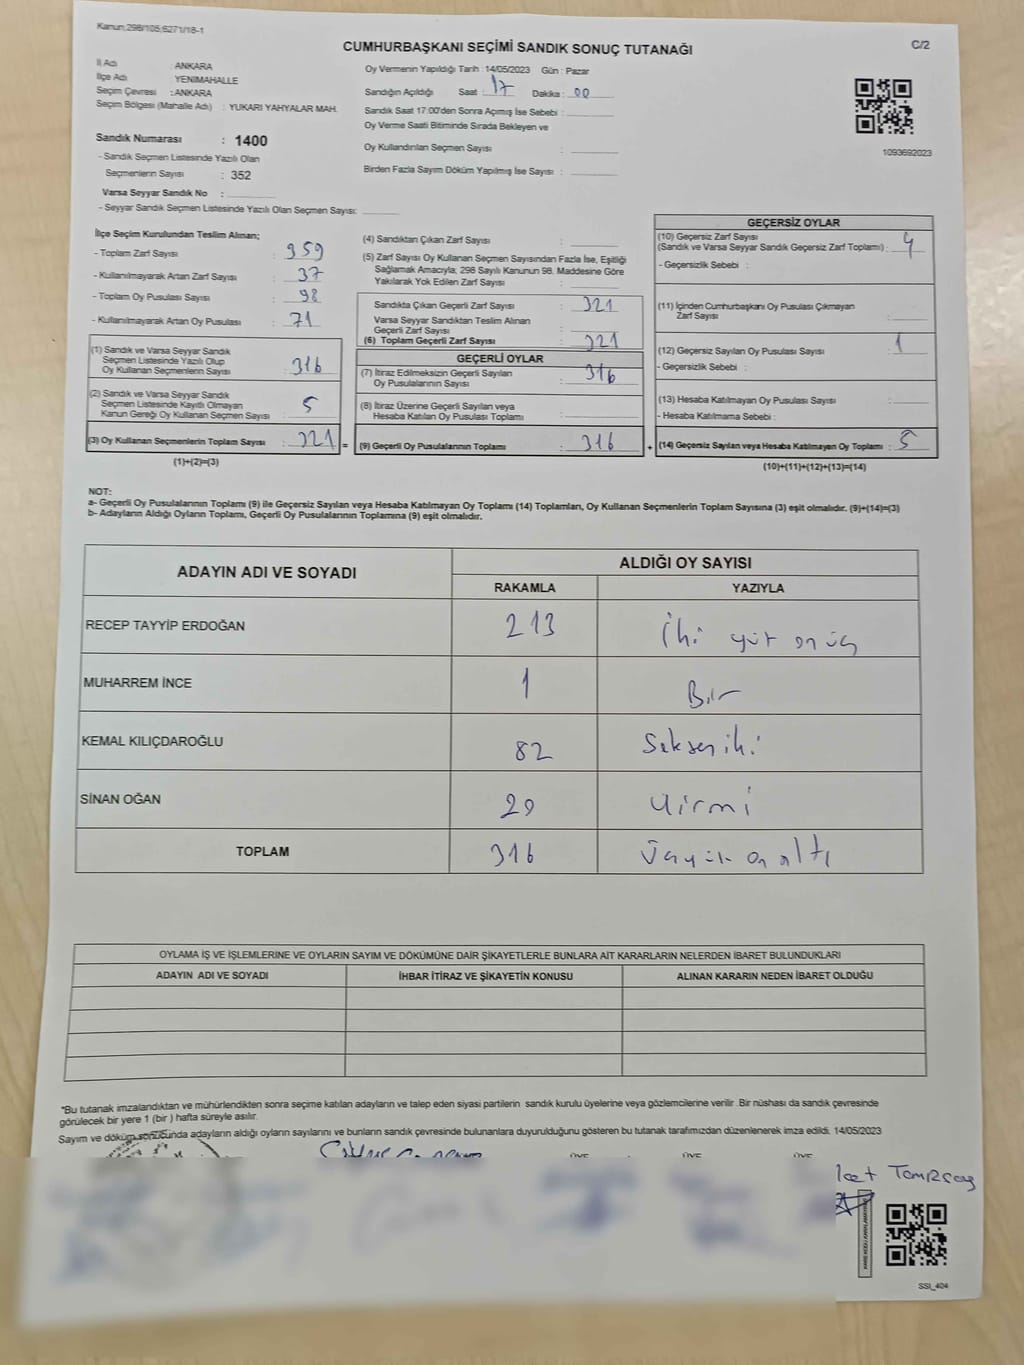 Kanun:298/105,6271/18-1
C/2
CUMHURBAŞKANI SEÇİMİ SANDIK SONUÇ TUTANAĞI
İl Adı : ANKARA
İlçe Adı : YENİMAHALLE
Seçim Çevresi : ANKARA
Seçim Bölgesi (Mahalle Adı) : YUKARI YAHYALAR MAH.
Oy Vermenin Yapıldığı Tarih :14/05/2023 Gün : Pazar
Sandığın Açıldığı Saat : 17 Dakika : 00
Sandık Saat 17:00'den Sonra Açımış İse Sebebi :
Oy Verme Saati Bitiminde Sırada Bekleyen ve
Oy Kullandırılan Seçmen Sayısı :
Birden Fazla Sayım Döküm Yapılmış İse Sayısı :
1093692023
Sandık Numarası : 1400
- Sandık Seçmen Listesinde Yazılı Olan
Seçmenlerin Sayısı : 352
Varsa Seyyar Sandık No :
- Seyyar Sandık Seçmen Listesinde Yazılı Olan Seçmen Sayısı:
İlçe Seçim Kurulundan Teslim Alınan;
- Toplam Zarf Sayısı :
- Kullanılmayarak Artan Zarf Sayısı : 37
- Toplam Oy Pusulası Sayısı : 98
- Kullanılmayarak Artan Oy Pusulası : 71
(1) Sandık ve Varsa Seyyar Sandık
Seçmen Listesinde Yazılı Olup
Oy Kullanan Seçmenlerin Sayısı : 316
(2) Sandık ve Varsa Seyyar Sandık
Seçmen Listesinde Kayıtlı Olmayan
Kanun Gereği Oy Kullanan Seçmen Sayısı : 5
(3) Oy Kullanan Seçmenlerin Toplam Sayısı : 321 =
(1)+(2)=(3)
(4) Sandıktan Çıkan Zarf Sayısı :
(5) Zarf Sayısı Oy Kullanan Seçmen Sayısından Fazla İse, Eşitliği
Sağlamak Amacıyla; 298 Sayılı Kanunun 98. Maddesine Göre
Yakılarak Yok Edilen Zarf Sayısı :
Sandıkta Çıkan Geçerli Zarf Sayısı : 321
Varsa Seyyar Sandıktan Teslim Alınan
Geçerli Zarf Sayısı :
(6) Toplam Geçerli Zarf Sayısı : 321
GEÇERLİ OYLAR
(7) İtiraz Edilmeksizin Geçerli Sayılan
Oy Pusulalarının Sayısı : 316
(8) İtiraz Üzerine Geçerli Sayılan veya
Hesaba Katılan Oy Pusulası Toplamı :
(9) Geçerli Oy Pusulalarının Toplamı : 316 +
GEÇERSİZ OYLAR
(10) Geçersiz Zarf Sayısı
(Sandık ve Varsa Seyyar Sandık Geçersiz Zarf Toplamı) : 4
- Geçersizlik Sebebi :
(11) İçinden Cumhurbaşkanı Oy Pusulası Çıkmayan
Zarf Sayısı :
(12) Geçersiz Sayılan Oy Pusulası Sayısı : 1
- Geçersizlik Sebebi :
(13) Hesaba Katılmayan Oy Pusulası Sayısı :
- Hesaba Katılmama Sebebi :
(14) Geçersiz Sayılan veya Hesaba Katılmayan Oy Toplamı : 5
(10)+(11)+(12)+(13)=(14)
NOT:
a- Geçerli Oy Pusulalarının Toplamı (9) ile Geçersiz Sayılan veya Hesaba Katılmayan Oy Toplamı (14) Toplamları, Oy Kullanan Seçmenlerin Toplam Sayısına (3) eşit olmalıdır. (9)+(14)=(3)
b- Adayların Aldığı Oyların Toplamı, Geçerli Oy Pusulalarının Toplamına (9) eşit olmalıdır.
ADAYIN ADI VE SOYADI
ALDIĞI OY SAYISI
RAKAMLA YAZIYLA
RECEP TAYYİP ERDOĞAN 213 İki yüz onüç
MUHARREM İNCE 1 Bir
KEMAL KILIÇDAROĞLU 82 Seksen iki
SİNAN OĞAN 20 Yirmi
TOPLAM 316 Üçyüz on altı
OYLAMA İŞ VE İŞLEMLERİNE VE OYLARIN SAYIM VE DÖKÜMÜNE DAİR ŞİKAYETLERLE BUNLARA AİT KARARLARIN NELERDEN İBARET BULUNDUKLARI
ADAYIN ADI VE SOYADI İHBAR İTİRAZ VE ŞİKAYETİN KONUSU ALINAN KARARIN NEDEN İBARET OLDUĞU
*Bu tutanak imzalandıktan ve mühürlendikten sonra seçime katılan adayların ve talep eden siyasi partilerin sandık kurulu üyelerine veya gözlemcilerine verilir .Bir nüshası da sandık çevresinde
görülecek bir yere 1 (bir ) hafta süreyle asılır.
Sayım ve döküm sonucunda adayların aldığı oyların sayılarını ve bunların sandık çevresinde bulunanlara duyurulduğunu gösteren bu tutanak tarafımızdan düzenlenerek imza edildi. 14/05/2023
ÜYE ÜYE ÜYE
SSİ_404